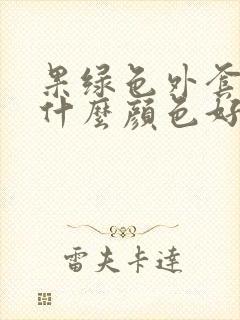 果绿色外套
什麼顔色好
雷夫卡達